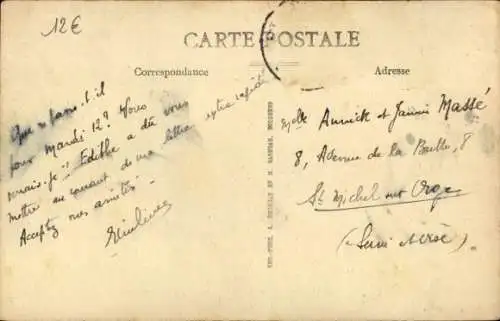 12€
CARTE POSTALE
Correspondance
Adresse
Que se passe-t-il
pour Mardi 12? Vous
verrais-je? Edithe a dû vous
mettre au courant de ma lettre extra rapide
Acceptez mes amitiés
Melle Annick et Jannie Massé
8, Avenue de la 8
St Michel sur Orge
(Seine et Oise)